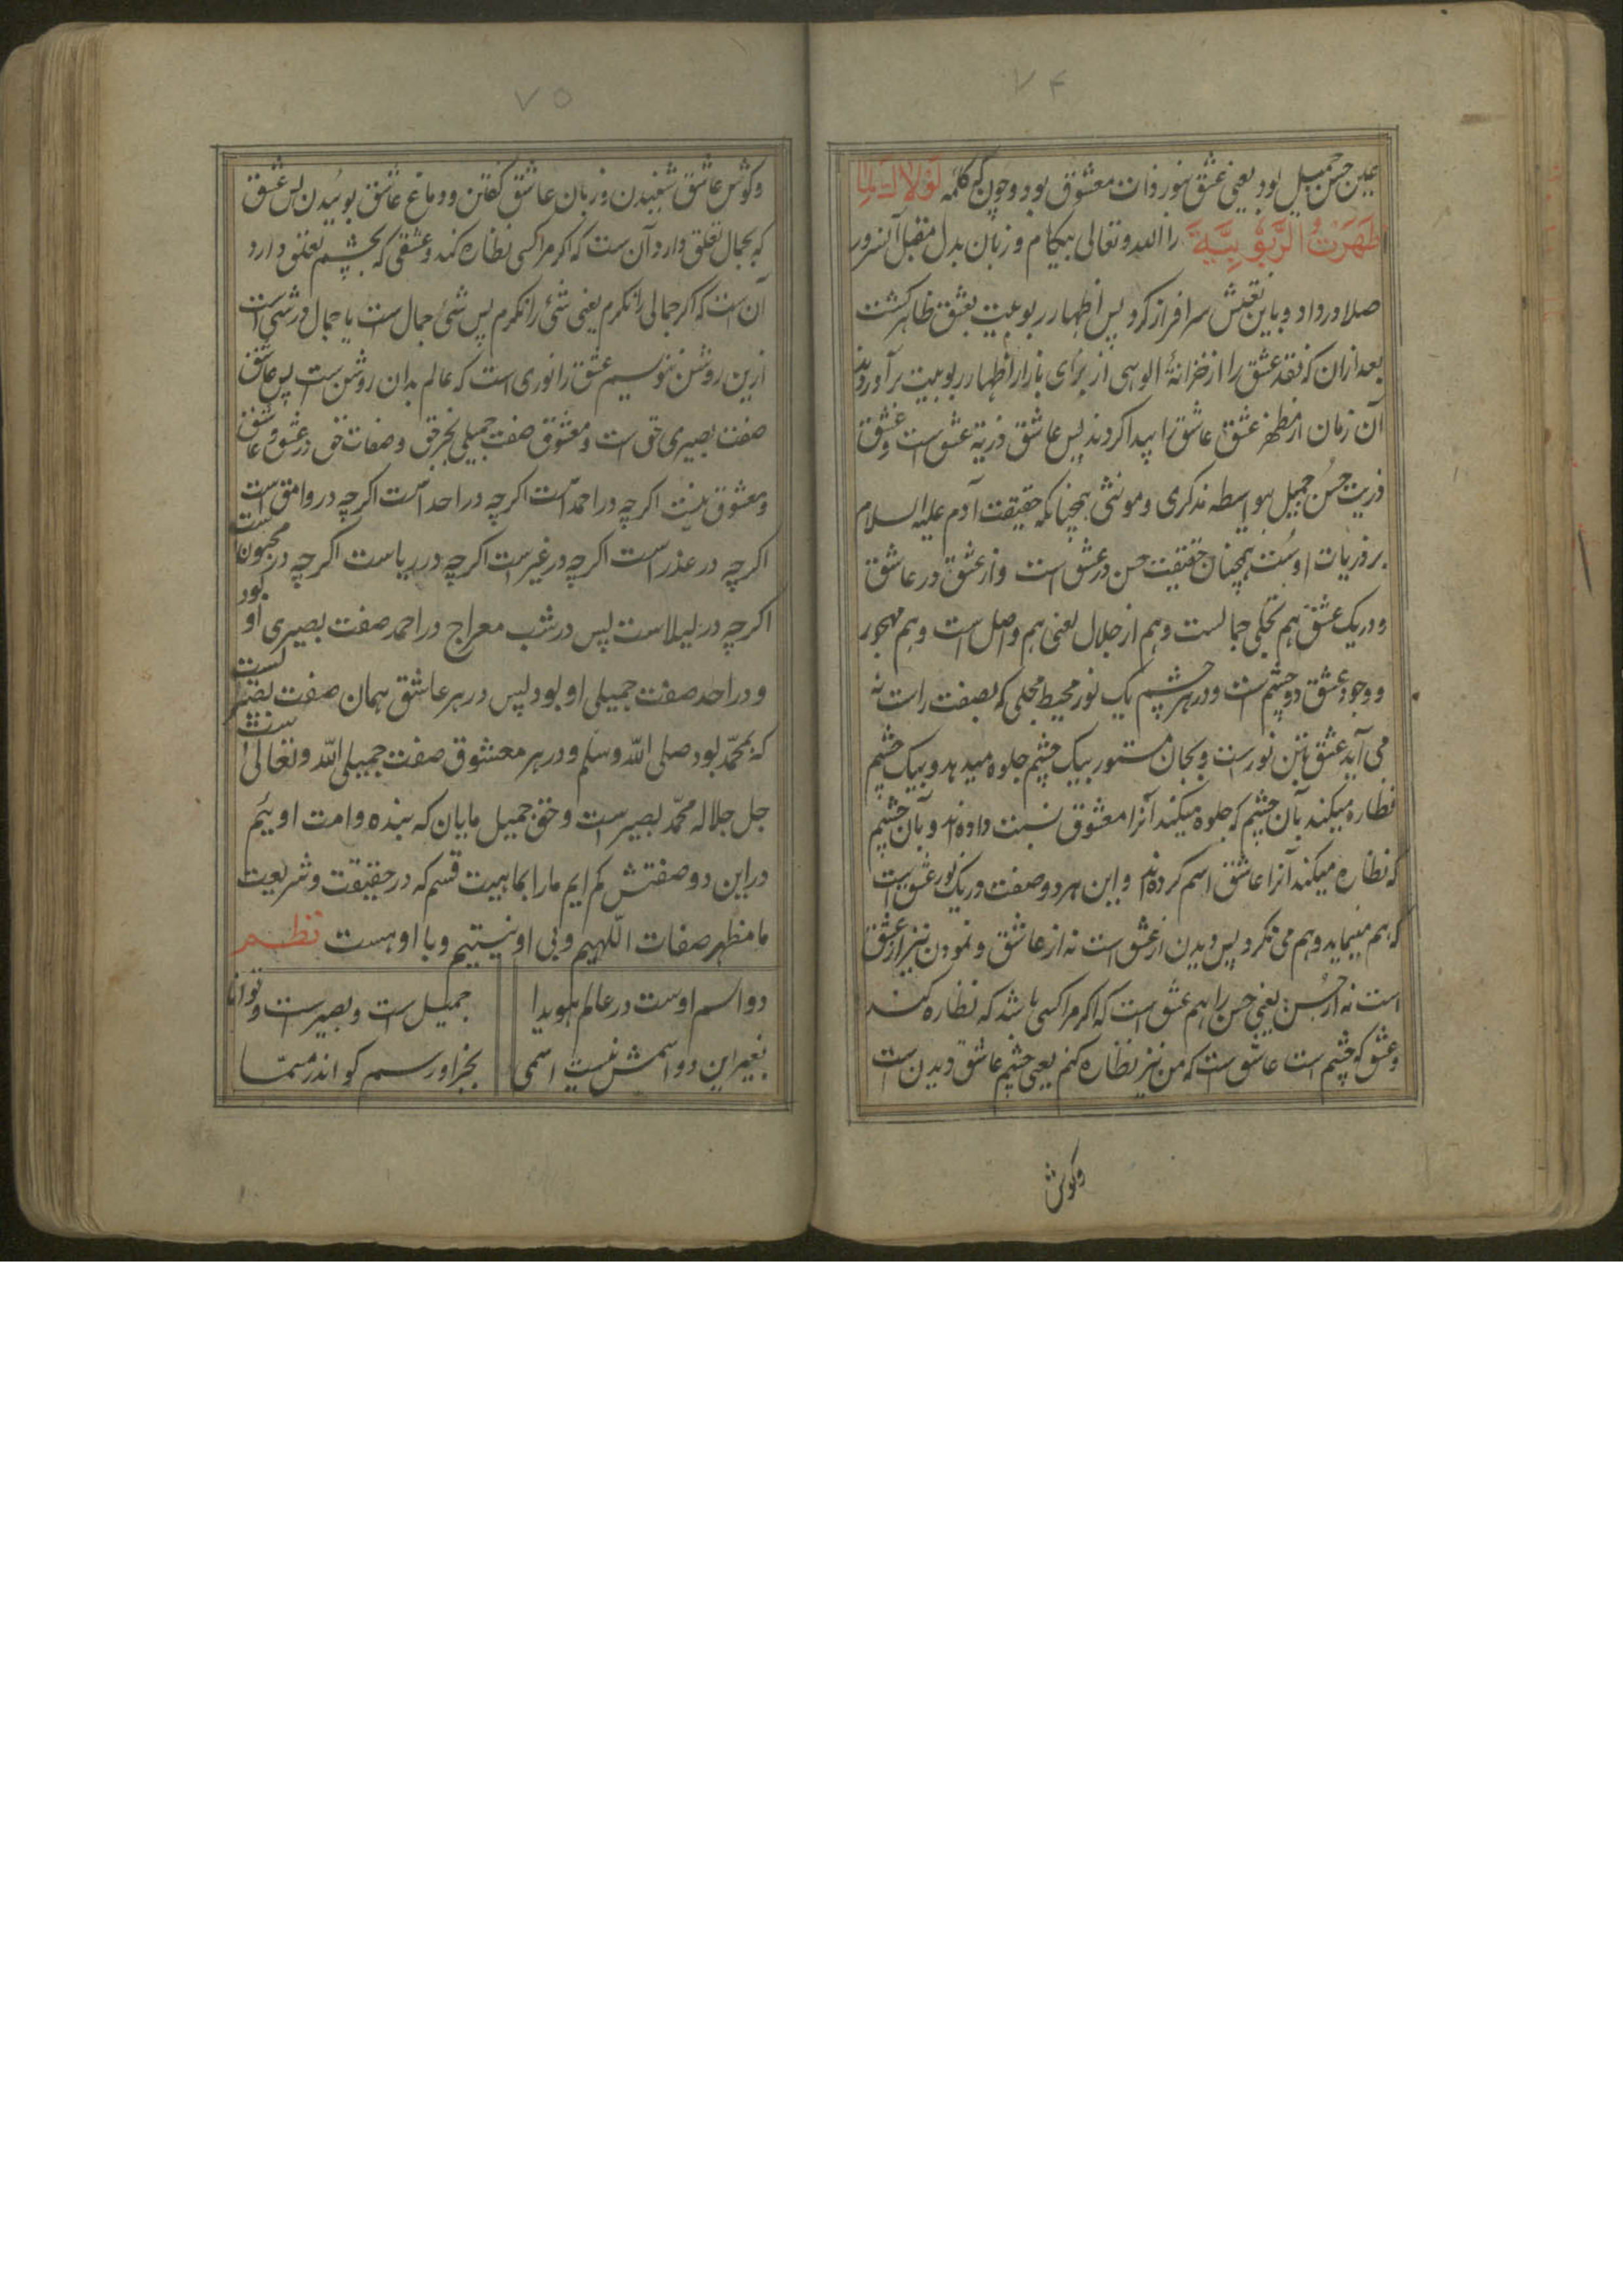 ۷۴
عین حسن جمیل بود یعنی عشق نور ذات معشوق بود و چون که کلمه لَوْلَاکَ لَمَا
ظَهَرَتُ الرَّبُوبِیَّةَ را الله و تعالی بیکام و زبان بدل مقبل آنسرور
صلا در داد و باین نقش سرافراز کرد پس اظهار ربوبیت بعشق ظاهر کشت
بعد ازان که نقد عشق را از خزانهٔ الوهی از برای بازار اظهار ربوبیت برآوردند
آن زمان از مظهر عشق عاشق را پیدا کردند پس عاشق ذریة عشق است و عشق
ذریت حسن جمیل بواسطه مذکری و مونثی همچنانکه حقیقت آدم علیه السلام
بر ذریات اوست همچنان حقیقت حسن در عشق است و از عشق در عاشق
و در یک عشق هم تجلی جمالست و هم از جلال یعنی هم واصل است و هم مهجور
و وجود عشق دو چشم ست و در هر چشم یک نور محیط مجلی که بصفت راست نه
می آید عشق بتن نورست و بجان مستور بیک چشم جلوه میدهد و بیک چشم
نظاره میکند بآن چشم که جلوه میکند آنرا معشوق نسبت داده اند و بآن چشم
که نظاره میکند آنرا عاشق اسم کرده اند و این هر دو صفت در یک نور عشق است
که هم مینماید و هم می نکرد پس دیدن از عشق است نه از عاشق و نمودن نیز از عشق
است نه از حسن یعنی حسن را هم عشق است که اکر مرا کسی باشد که نظاره کند
و عشق که چشم است عاشق است که من نیز نظاره کنم یعنی چشم عاشق دیدن است
وکوش
۷۵
وکوش عاشق شنیدن و زبان عاشق کفتن و دماغ عاشق بوئیدن پس عشق
که بجمال تعلق دارد آن ست که اکر مرا کسی نظاره کند و عشقی که بچشم تعلق دارد
آن است که اکر جمالی را نکرم یعنی شئ را نکرم پس شئ جمال ست یا جمال در شئ است
ازین روشن شویم عشق را نوری است که عالم بدان روشن ست پس عاشق
صفت بصیری حق ست و معشوق صفت جمیلی بجز حق و صفات حق در عشق و عاشق
و معشوق نیست اکرچه در احمد است اکرچه در احد است اکرچه در وامق است
اکرچه در عذر است اکرچه در غیر ست اکرچه در ریاست اکرچه در مجنون ست
اکرچه در لیلاست پس در شب معراج در احمد صفت بصیری او بود
و در احد صفت جمیلی او بود پس در هر عاشق همان صفت بصیریست
که بمحمد بود صلی الله وسلم و در هر معشوق صفت جمیلی الله و تعالی ست
جل جلاله محمد بصیرست و حق جمیل مایان که بنده و امت اوئیم
در این دو صفتش کم ایم ما را بماهیت قسم که در حقیقت و شریعت
ما مظهر صفات اللهیم و بی او نیستیم و با او هست نظم
دو اسم اوست در عالم هویدا جمیل ست و بصیر ست و توانا
بغیر این دو اسمش نیست اسمی بجز او رسم کو اندر مسما